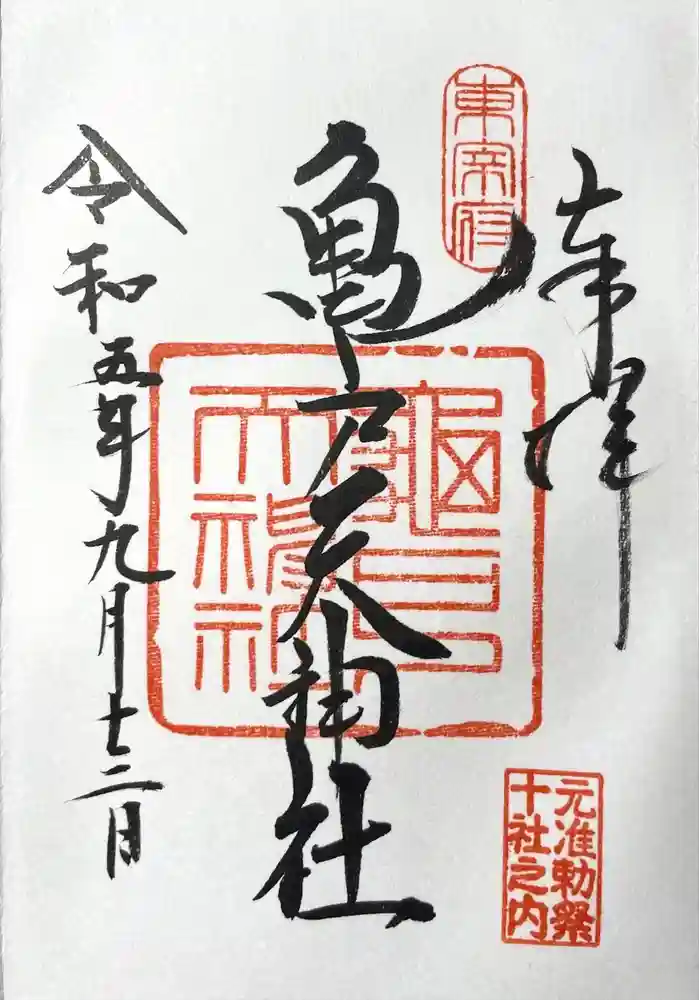 奉拝
東宰府
亀戸天神社
龜戸
天神社
令和五年九月十二日
元准勅祭
十社之内